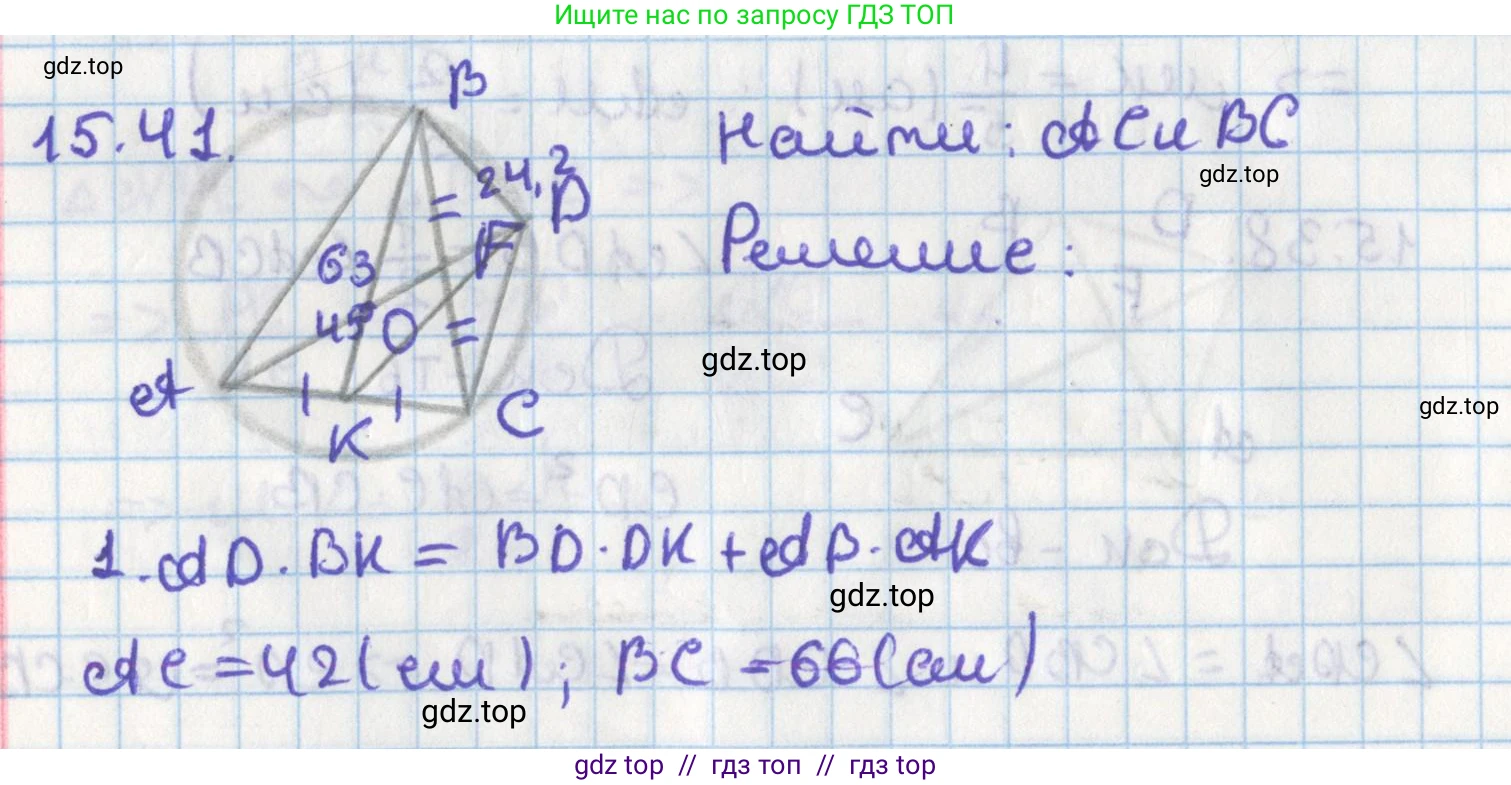 Ищите нас по запросу ГДЗ ТОП
gdz.top
15.41.
B
Найти: AC и BC
gdz.top
24,2
D
F
Решение:
63
45
O
gdz.top
A
K
C
gdz.top
1. AD · BK = BD · DK + AB · AK
gdz.top
AC = 42 (см); BC = 66 (см)
gdz.top
gdz top // гдз топ // гдз top